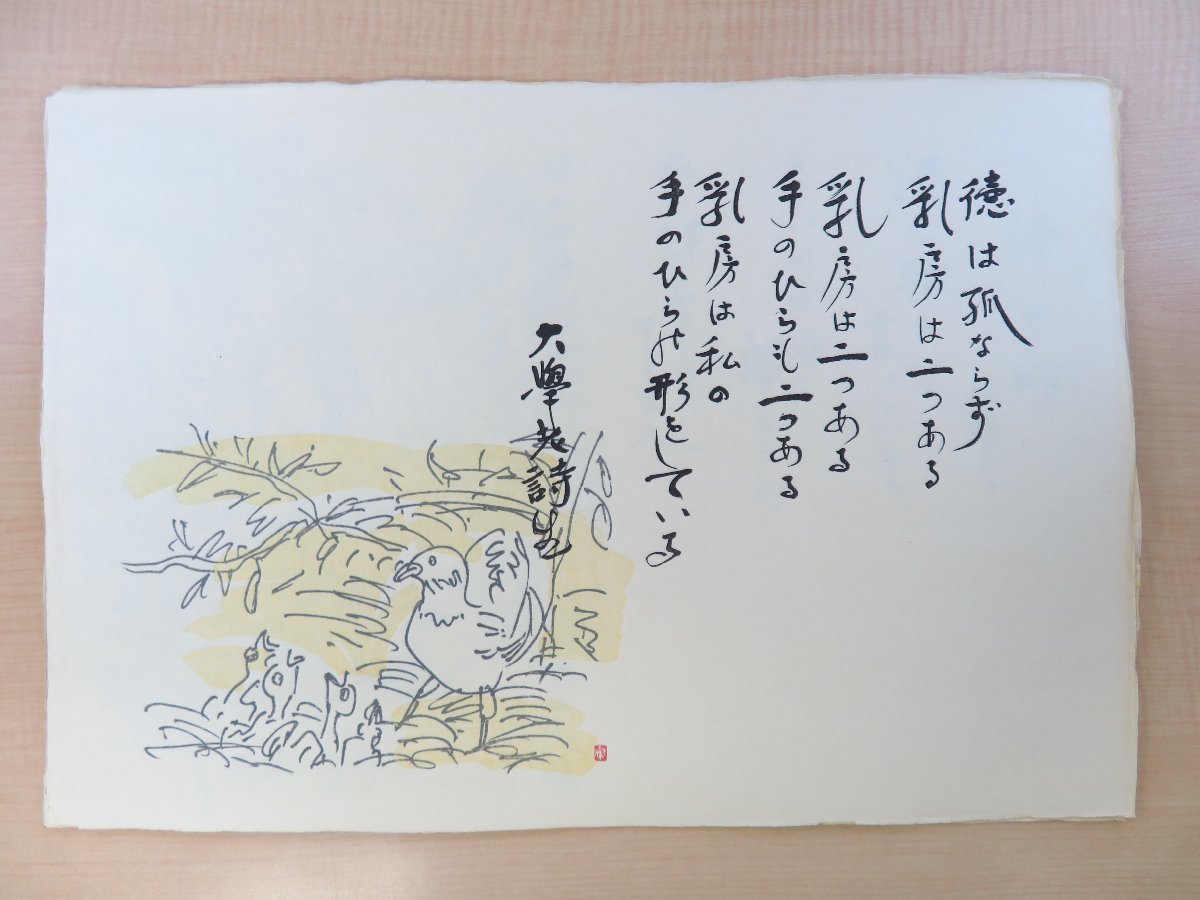 徳は孤ならず
乳房は二つある
乳房は二つある
手のひらも二つある
乳房は私の
手のひらの形をしている
大學老詩生